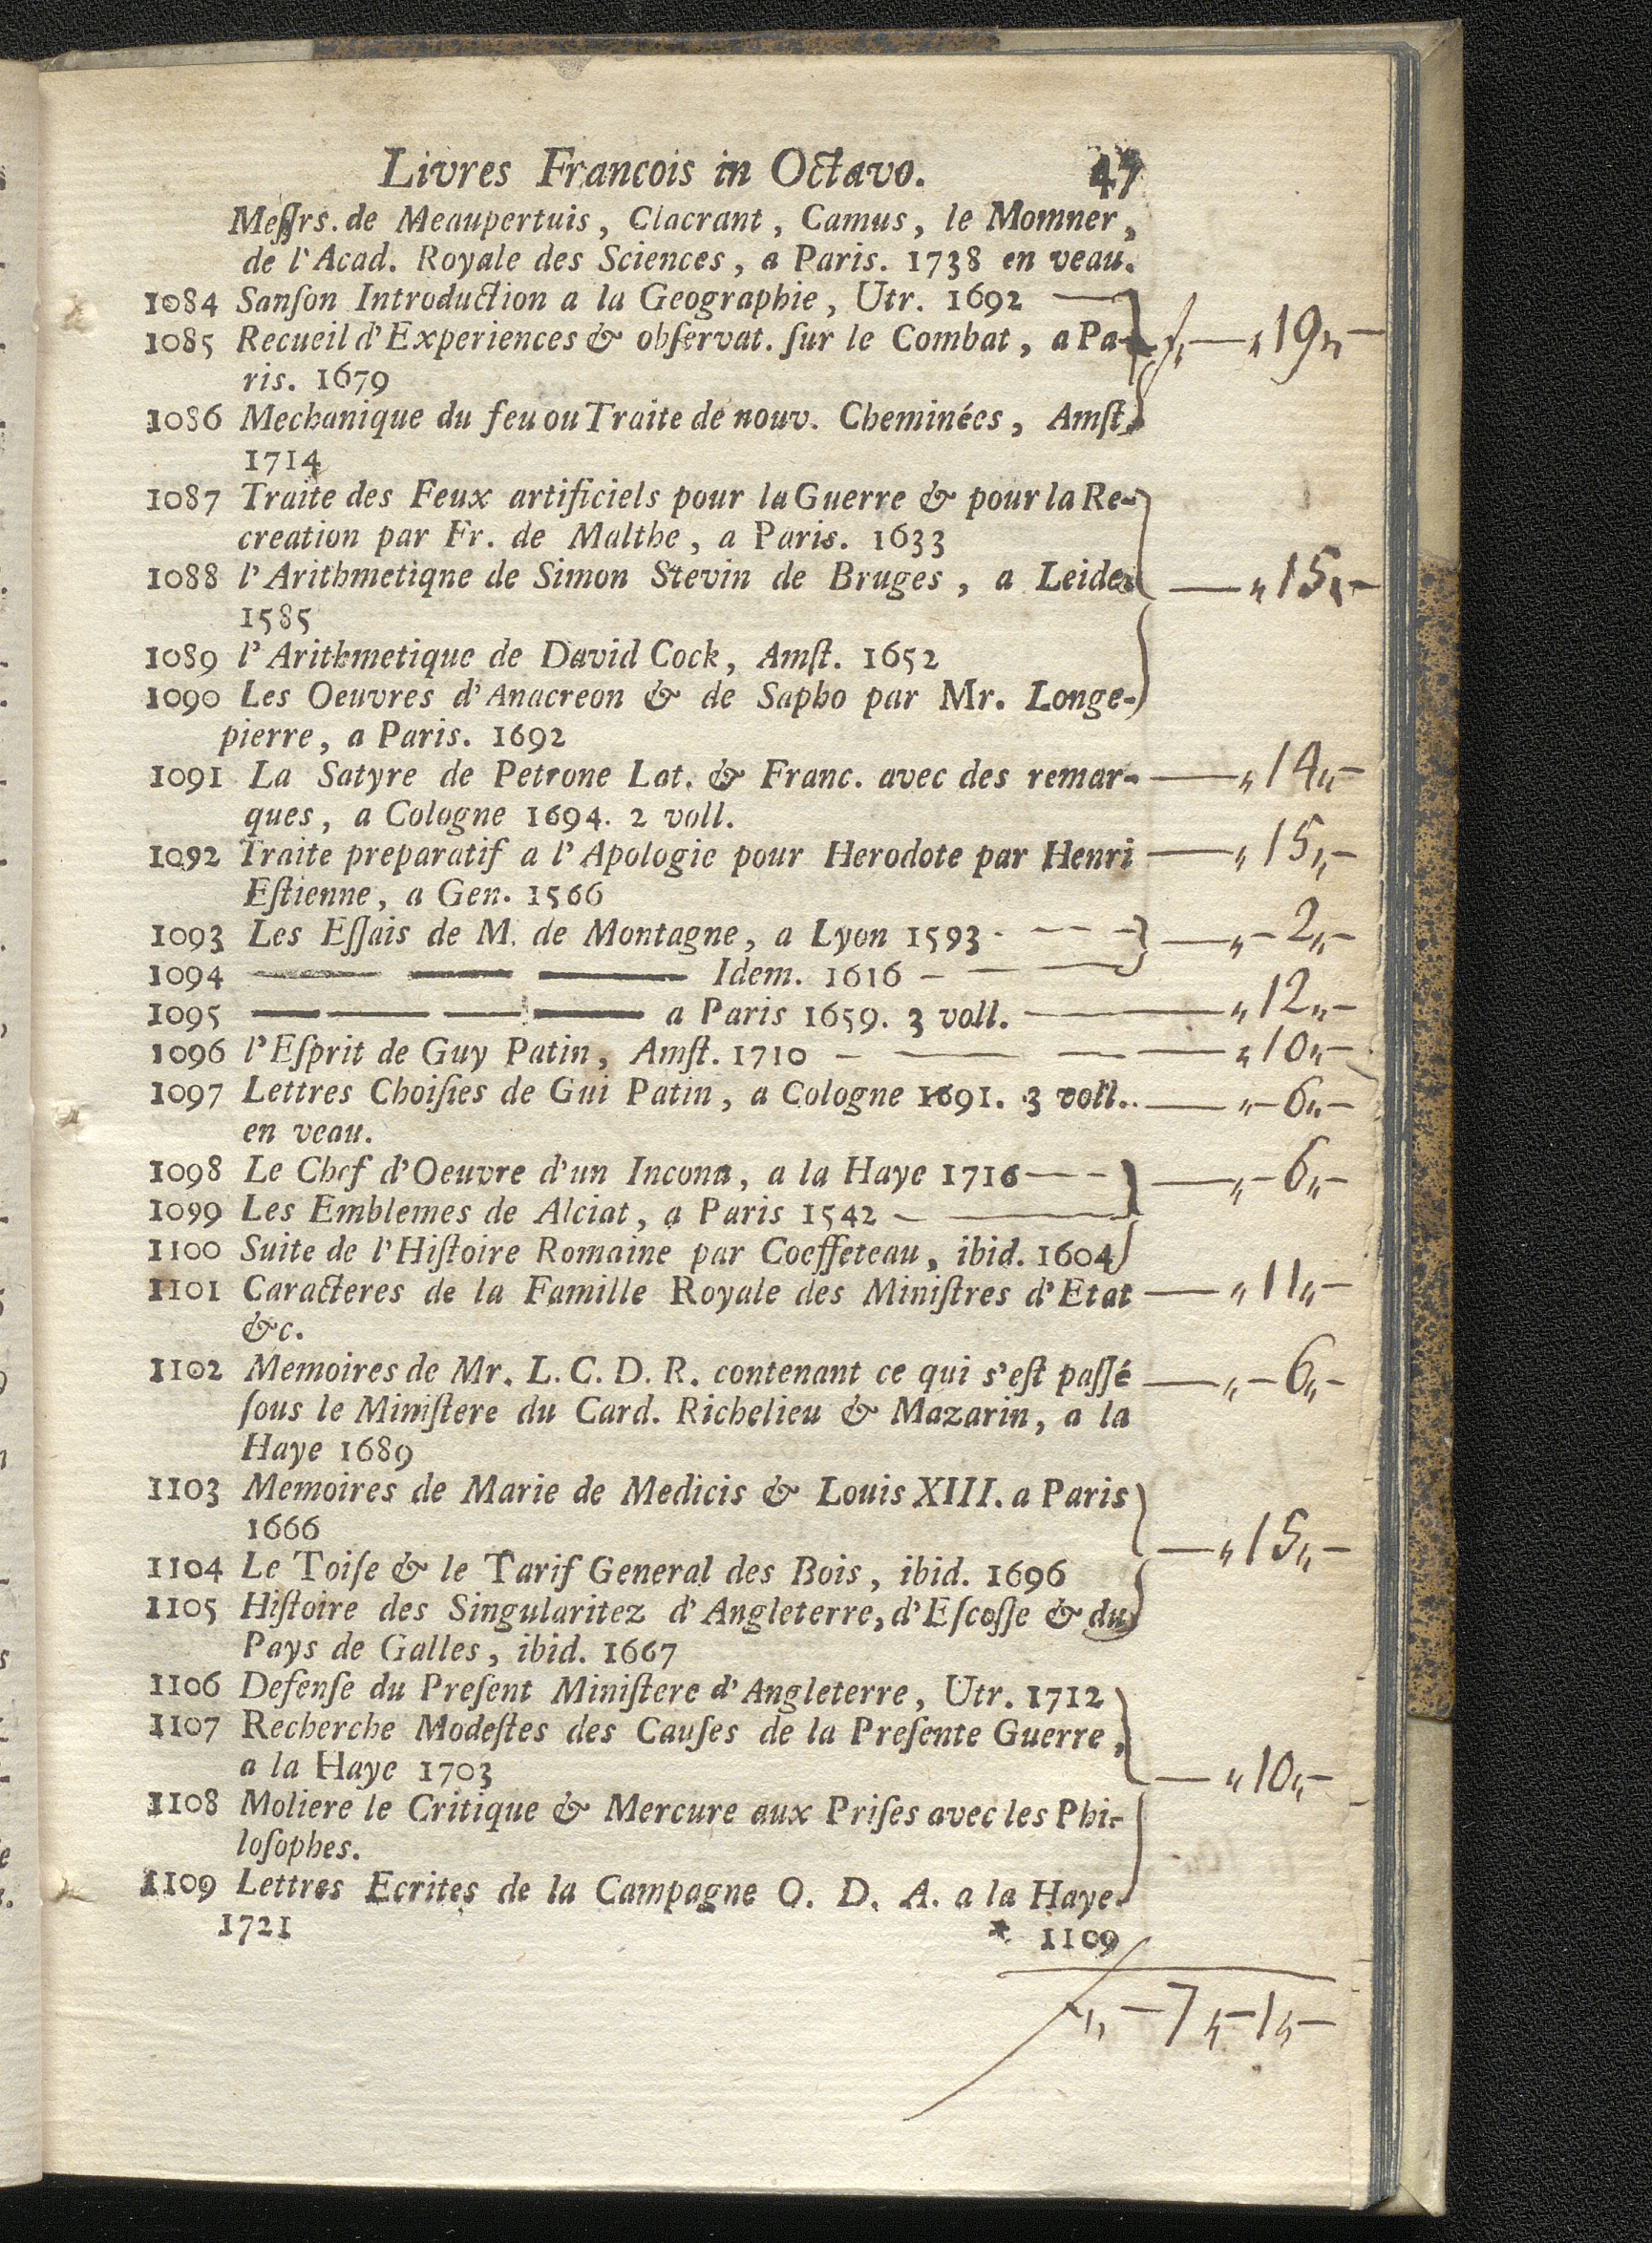 Livres Francois in Octavo. 47
Meſſrs. de Meaupertuis, Clacrant, Camus, le Momner,
de l'Acad. Royale des Sciences, a Paris. 1738 en veau.
1084 Sanſon Introduction a la Geographie, Utr. 1692
1085 Recueil d'Experiences & obſervat. ſur le Combat, a Pa- f „ — „ 19 „ —
ris. 1679
1086 Mechanique du feu ou Traite de nouv. Cheminées, Amſt.
1714
1087 Traite des Feux artificiels pour la Guerre & pour la Re-
creation par Fr. de Malthe, a Paris. 1633
1088 l'Arithmetiqne de Simon Stevin de Bruges, a Leide. — „ 15 „ —
1585
1089 l'Arithmetique de David Cock, Amſt. 1652
1090 Les Oeuvres d'Anacreon & de Sapho par Mr. Longe-
pierre, a Paris. 1692
1091 La Satyre de Petrone Lat. & Franc. avec des remar- — „ 14 „ —
ques, a Cologne 1694. 2 voll.
1092 Traite preparatif a l'Apologie pour Herodote par Henri — „ 15 „ —
Eſtienne, a Gen. 1566
1093 Les Eſſais de M. de Montagne, a Lyon 1593 — „ — 2 „ —
1094 — — — Idem. 1616
1095 — — — — a Paris 1659. 3 voll. — „ 12 „ —
1096 l'Eſprit de Guy Patin, Amſt. 1710 — „ 10 „ —
1097 Lettres Choiſies de Gui Patin, a Cologne 1691. 3 voll. — „ — 6 „ —
en veau.
1098 Le Chef d'Oeuvre d'un Inconn, a la Haye 1716 — „ — 6 „ —
1099 Les Emblemes de Alciat, a Paris 1542
1100 Suite de l'Hiſtoire Romaine par Coeffeteau, ibid. 1604
1101 Caracteres de la Famille Royale des Miniſtres d'Etat — „ 11 „ —
&c.
1102 Memoires de Mr. L. C. D. R. contenant ce qui s'eſt paſſé — „ — 6 „ —
ſous le Miniſtere du Card. Richelieu & Mazarin, a la
Haye 1689
1103 Memoires de Marie de Medicis & Louis XIII. a Paris
1666 — „ 15 „ —
1104 Le Toiſe & le Tarif General des Bois, ibid. 1696
1105 Hiſtoire des Singularitez d'Angleterre, d'Eſcoſſe & du
Pays de Galles, ibid. 1667
1106 Defenſe du Preſent Miniſtere d'Angleterre, Utr. 1712
1107 Recherche Modeſtes des Cauſes de la Preſente Guerre,
a la Haye 1703 — „ 10 „ —
1108 Moliere le Critique & Mercure aux Priſes avec les Phi-
loſophes.
1109 Lettres Ecrites de la Campagne O. D. A. a la Haye.
1721 * 1109
„ — 7 „ — 1 „ —